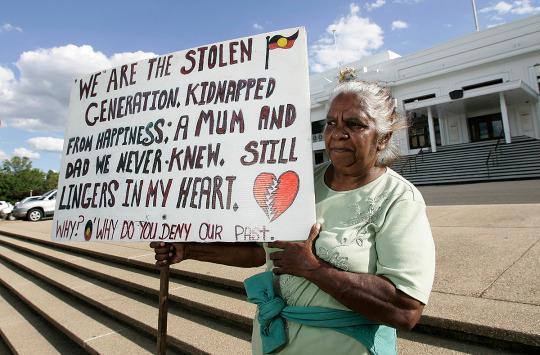 "WE" ARE THE STOLEN
GENERATION. KIDNAPPED
FROM HAPPINESS; A MUM AND
DAD WE NEVER-KNEW. STILL
LINGERS IN MY HEART.
WHY? WHY DO YOU DENY OUR PAST.